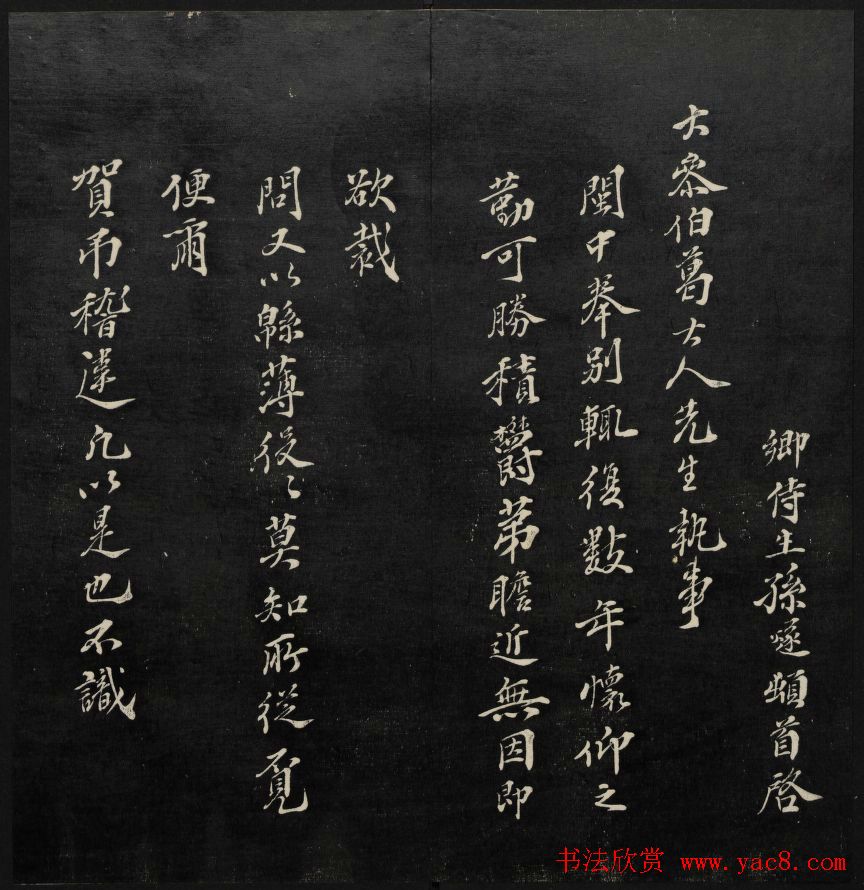 鄉侍生孫燧頓首啓
大參伯葛大人先生執事
閩中奉別輒復數年懷仰之
勤可勝積鬱第瞻近無因即
欲裁
問又以緜薄役〻莫知所從覓
便爾
賀弔稽違凡以是也不識
书法欣赏 www.yac8.com